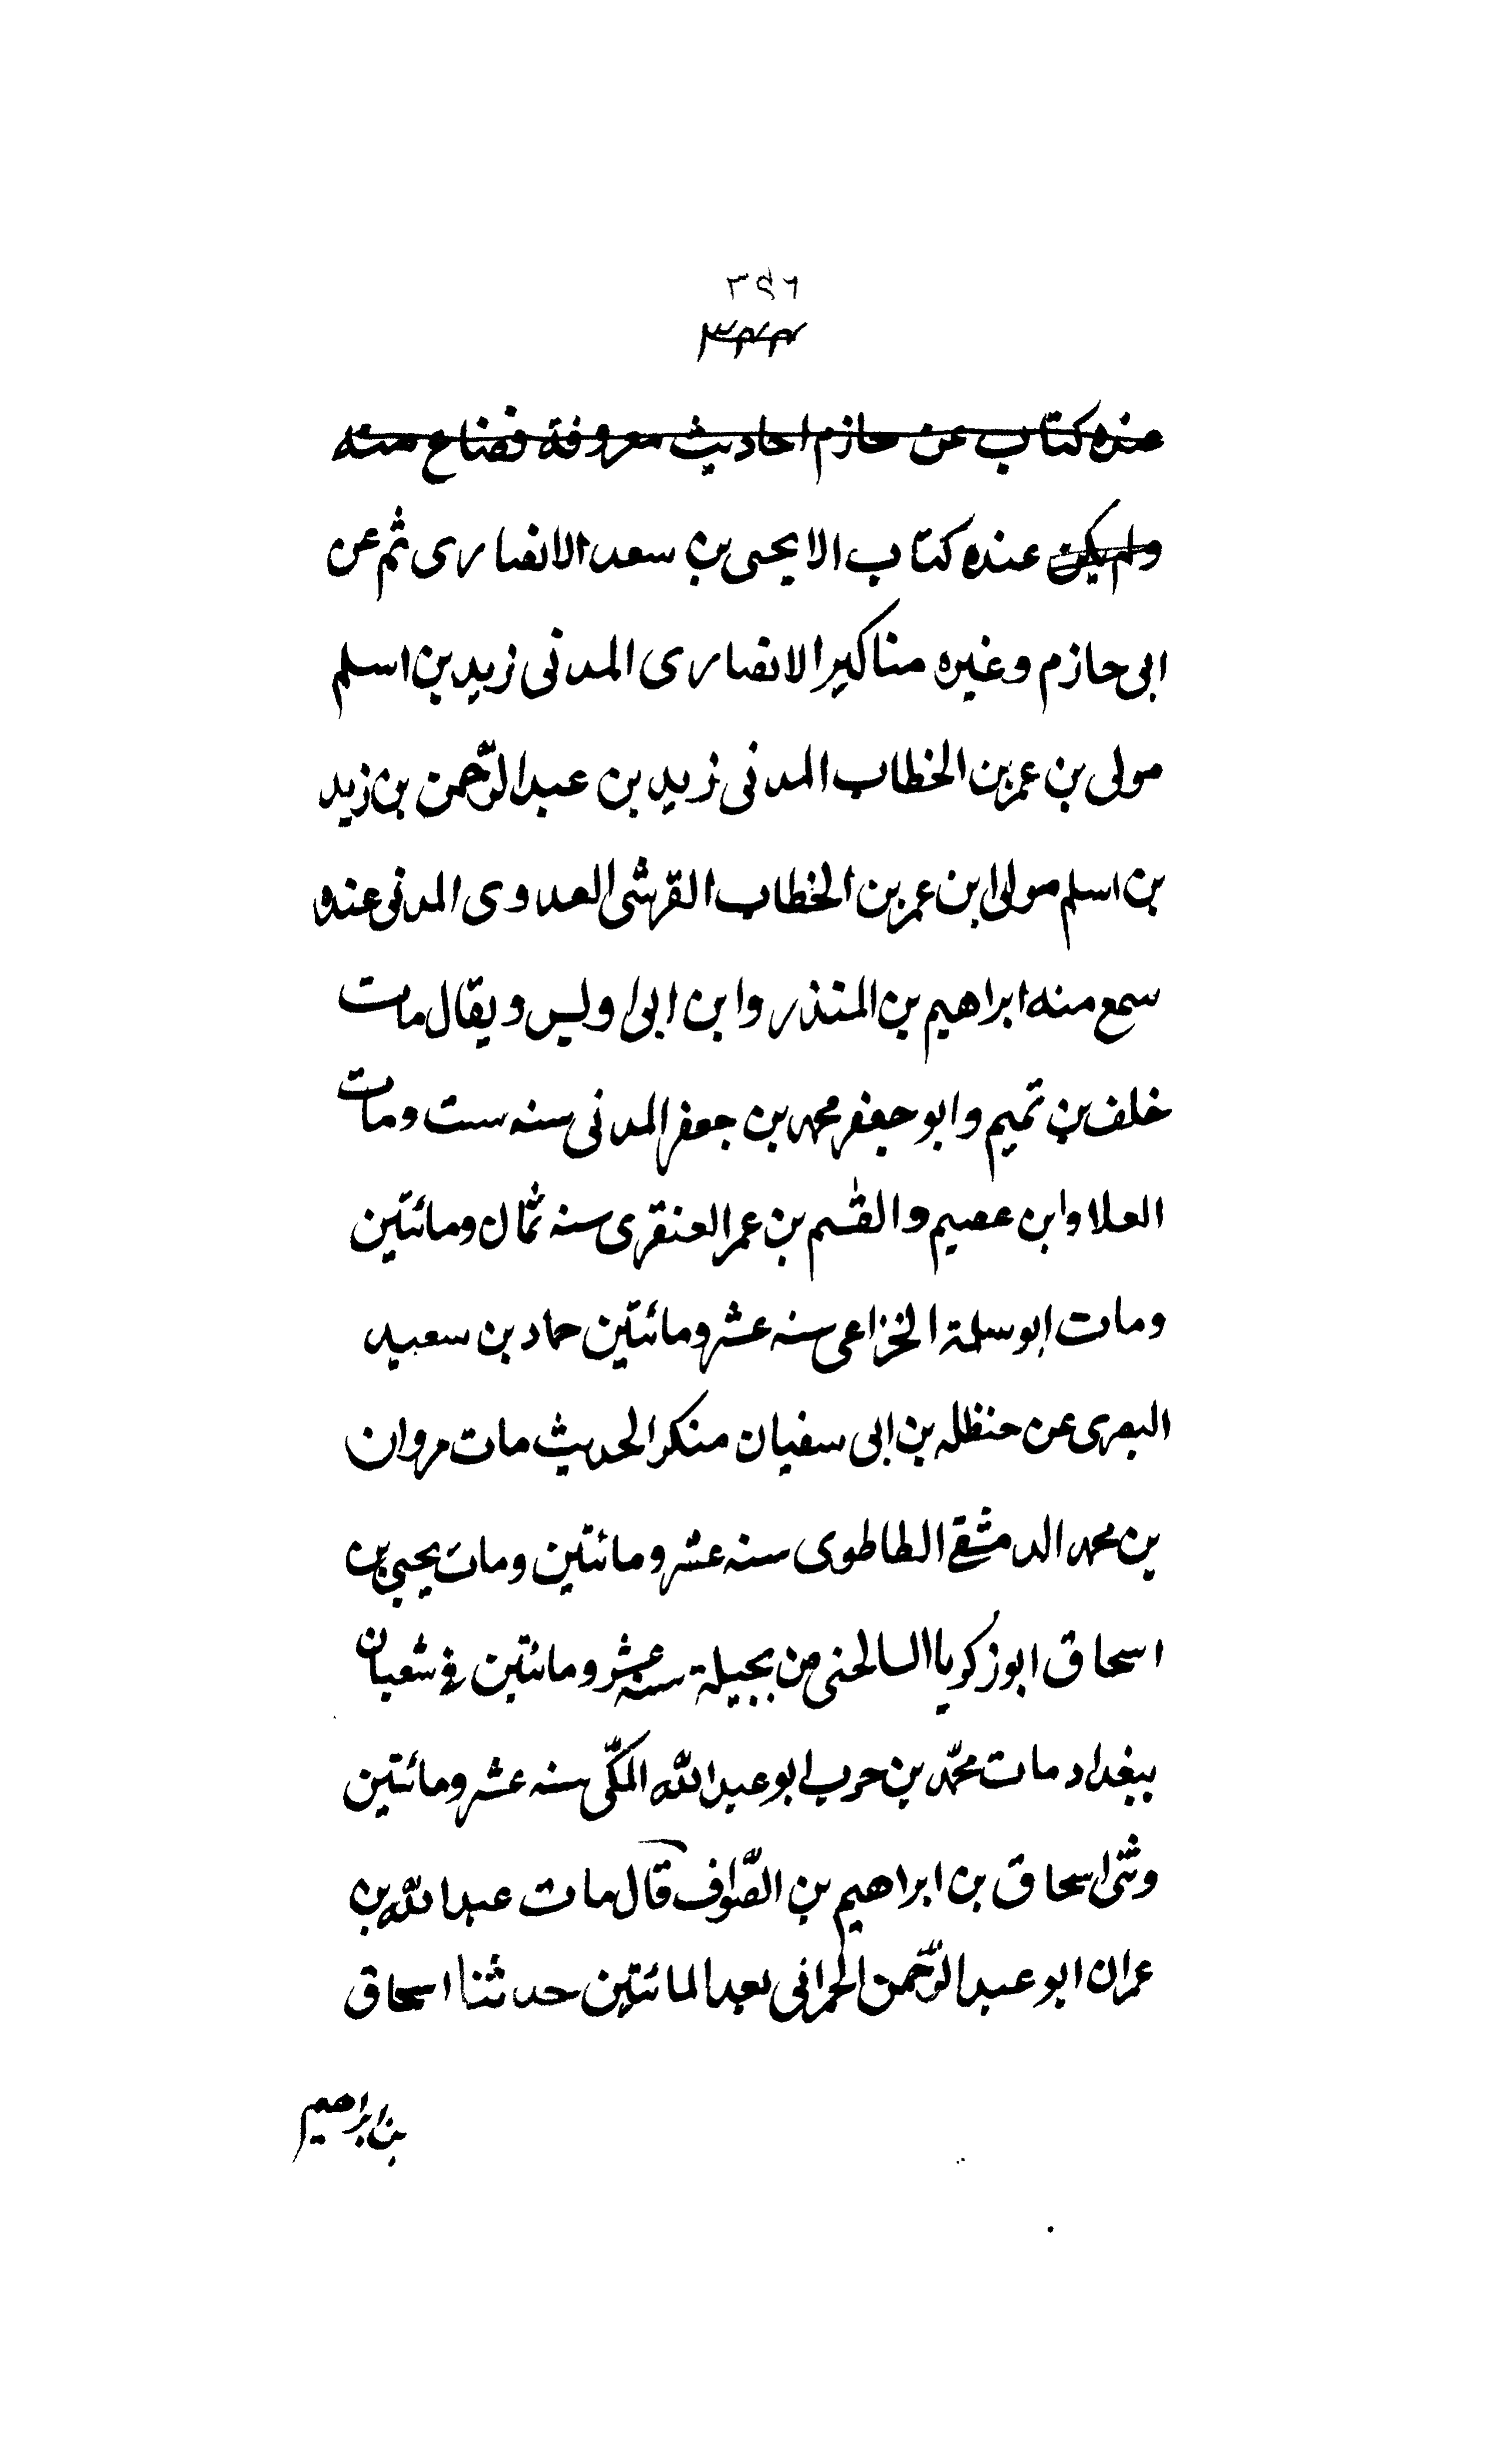 ٣٩٦
عنده كتاب عن حازم احاديث معروفة فضاع منه
ولم يكن عنده كتاب الا يحيى بن سعد الانصارى ثم عن
ابى حازم وغيره مناكير الانصارى المدنى زيد بن اسلم
مولى بن عمر بن الخطاب المدنى زيد بن عبد الرّحمن بن زيد
بن اسلم مولى ابن عمر بن الخطاب القرشى العدوى المدنى عنده
سمع منه ابراهيم بن المنذر وابن ابى اويس ويقال مات
خلف بن تميم وابو جعفر محمد بن جعفر المدنى سنه ست ومات
العلا وابن عصيم والقٰسم بن عمر العنقرى سنه ثمان ومائتين
ومات ابو سلمة الخزاعى سنه عشر ومائتين حماد بن سعيد
البصرى عن حنظله بن ابى سفيان منكر الحديث مات مروان
بن محمد الدمشقے الطاطوى سنه عشر ومائتين ومات يحيى بن
اسحاق ابو زكريا السالحنى من بجيلة سنه عشر ومائتين فے شعبان
ببغداد مات محمّد بن حرب ابو عبد الله المكّى سنه عشر ومائتين
وثنى اسحاق بن ابراهيم بن الصّواف قال مات عبد الله بن
عمران ابو عبد الرّحمن الحرانى بعد المائتين حدثنا اسحاق
بن ابراهيم